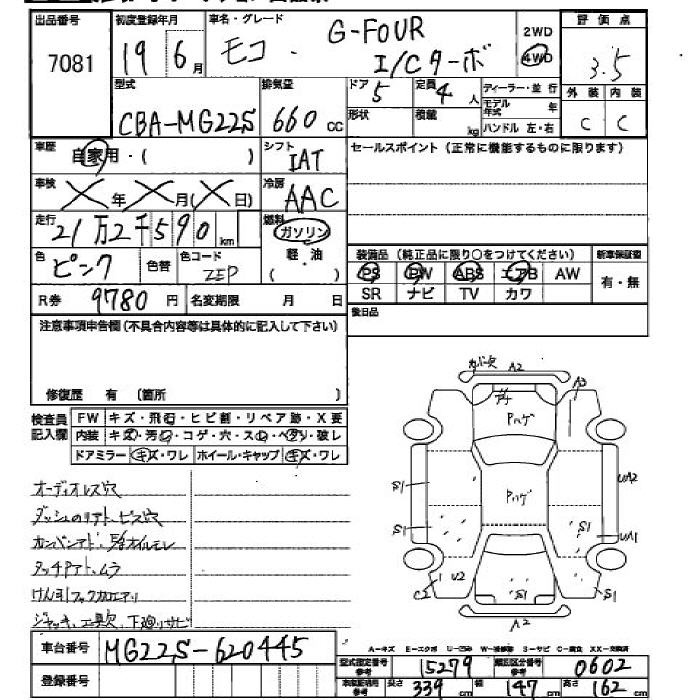 出品番号 初度登録年月 車名・グレード 評価点
7081 19年6月 モコ・ G-FOUR 2WD 3.5
I/Cターボ 4WD
型式 排気量 ドア 定員 ディーラー・並行 外装 内装
CBA-MG22S 660cc 5 4人 モデル年式 年 C C
形状 積載 kg ハンドル 左・右
車歴 自家用・( ) シフト IAT セールスポイント(正常に機能するものに限ります)
車検 X年X月(X日) 冷房 AAC
走行 21万2千590km 燃料 ガソリン
軽・油
( )
色 ピンク 色替 色コード ZEP
装備品(純正品に限り○をつけてください) 新車保証書
PS PW ABS エアB AW 有・無
SR ナビ TV カワ
R券 9780円 名変期限 月 日 後日品
注意事項申告欄(不具合内容等は具体的に記入して下さい)
修復歴 有 〔箇所 〕
検査員記入欄 FW キズ・飛石・ヒビ割・リペア跡・X要
内装 キズ・汚れ・コゲ・穴・スレ・ヘタリ・破レ
ドアミラー キズ・ワレ ホイール・キャップ キズ・ワレ
オーディオレス穴
ダッシュのリアト、ビス穴
タッチPアト、ムラ
ジャッキ、工具欠、下廻りサビ
カバー欠 A2
A3
Pハゲ
S1 Pハゲ UA2
S1 S1 UA1
C2 U2 S1 S1
A2
車台番号 MG22S-620445
登録番号
A-キズ E-エクボ U-凹み W-補修跡 S-サビ C-腐食 XX-交換済
型式指定番号 参考 15279 類別区分番号 参考 0602
車検証記載 参考 長さ 339cm 幅 147cm 高さ 162cm